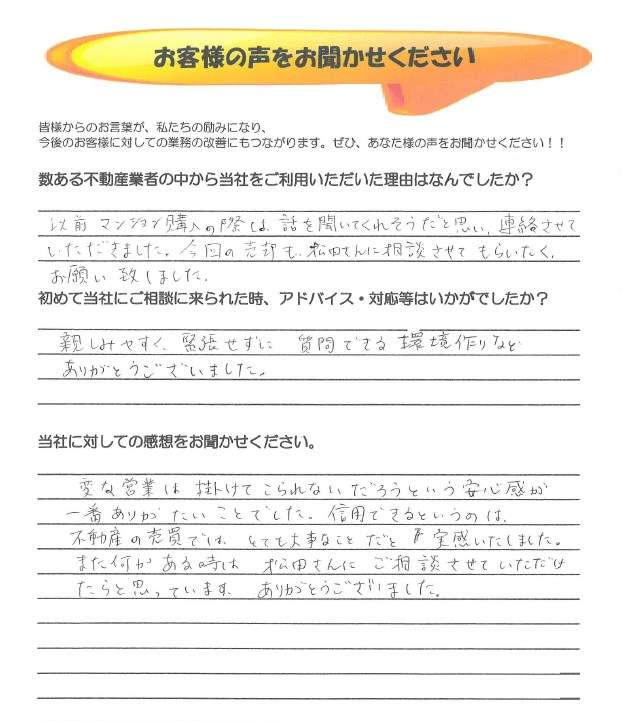 お客様の声をお聞かせください
皆様からのお言葉が、私たちの励みになり、
今後のお客様に対しての業務の改善にもつながります。ぜひ、あなた様の声をお聞かせください！！
数ある不動産業者の中から当社をご利用いただいた理由はなんでしたか？
以前マンション購入の際は、話を聞いてくれそうだと思い、連絡させて
いただきました。今回の売却も、松田さんに相談させてもらいたく、
お願い致しました。
初めて当社にご相談に来られた時、アドバイス・対応等はいかがでしたか？
親しみやすく、緊張せずに 質問できる環境作りなど
ありがとうございました。
当社に対しての感想をお聞かせください。
変な営業は掛けてこられないだろうという安心感が
一番ありがたいことでした。信用できるというのは、
不動産の売買では、とても大事なことだと実感いたしました。
また何かある時は 松田さんに ご相談させていただけ
たらと思っています。ありがとうございました。